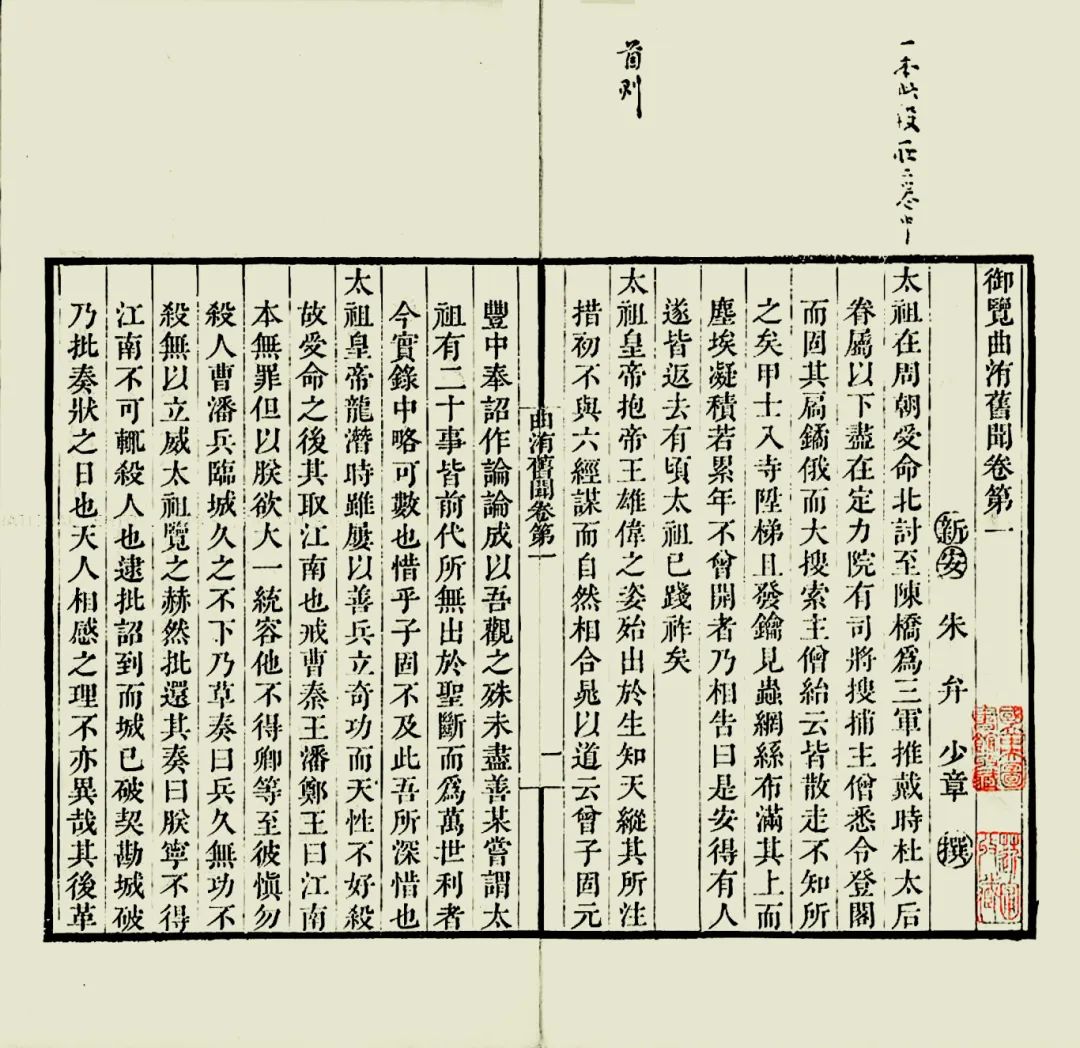 一本此段在二卷中
首則
御覽曲洧舊聞卷第一
新安　朱　弁　少章　撰
太祖在周朝受命北討至陳橋爲三軍推戴時杜太后
眷屬以下盡在定力院有司將搜捕主僧悉令登閣
而固其扃鐍俄而大搜索主僧紿云皆散走不知所
之矣甲士入寺陞梯且發鑰見蟲網絲布滿其上而
塵埃凝積若累年不曾開者乃相告曰是安得有人
遂皆返去有頃太祖已踐祚矣
太祖皇帝抱帝王雄偉之姿殆出於生知天縱其所注
措初不與六經謀而自然相合晁以道云曾子固元
曲洧舊聞卷第一
一
豐中奉詔作論論成以吾觀之殊未盡善某嘗謂太
祖有二十事皆前代所無出於聖斷而爲萬世利者
今實錄中略可數也惜乎子固不及此吾所深惜也
太祖皇帝龍潛時雖屢以善兵立奇功而天性不好殺
故受命之後其取江南也戒曹秦王潘鄭王曰江南
本無罪但以朕欲大一統容他不得卿等至彼愼勿
殺人曹潘兵臨城久之不下乃草奏曰兵久無功不
殺無以立威太祖覽之赫然批還其奏曰朕寧不得
江南不可輒殺人也逮批詔到而城已破契勘城破
乃批奏狀之日也天人相感之理不亦異哉其後革